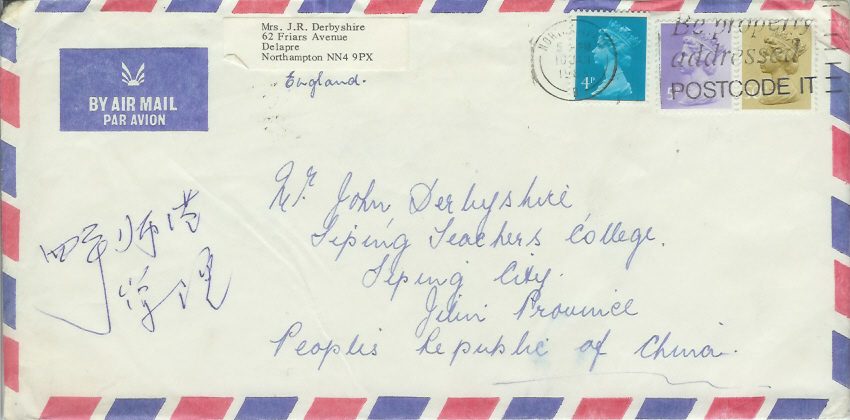 Mrs. J.R. Derbyshire
62 Friars Avenue
Delapre
Northampton NN4 9PX
England.
BY AIR MAIL
PAR AVION
4P
Be properly
addressed
POSTCODE IT
Mr. John Derbyshire
Siping Teachers College.
Siping City.
Jilin Province
Peoples Republic of China.
四平师